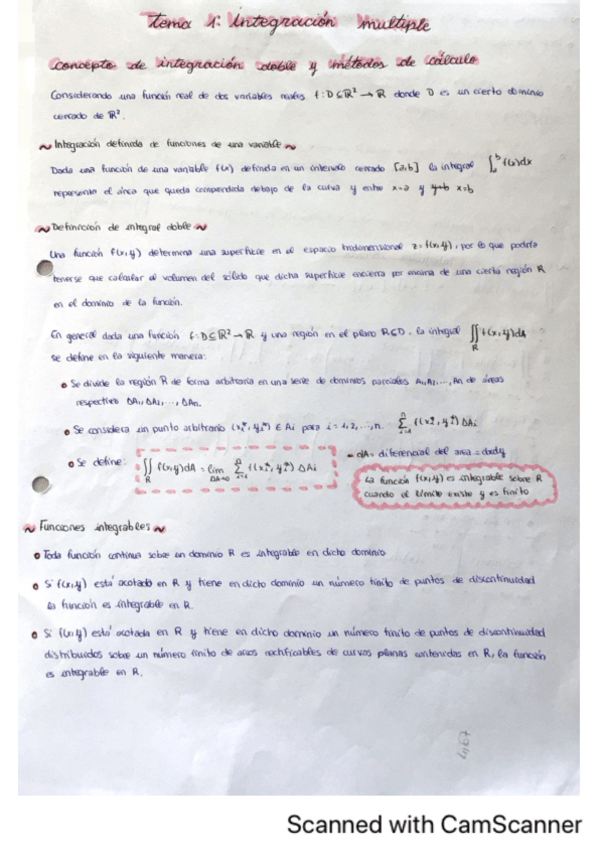 Tema 1: Integración multiple
Concepto de integración doble y métodos de cálculo
Considerando una función real de dos variables reales f: D⊆ℝ² → ℝ donde D es un cierto dominio
cerrado de ℝ².
~ Integración definida de funciones de una variable ~
Dada una función de una variable f(x) definida en un intervalo cerrado [a,b] la integral ∫ₐᵇ f(x)dx
representa el área que queda comprendida debajo de la curva y entre x=a y x=b
~ Definición de integral doble ~
Una función f(x,y) determina una superficie en el espacio tridimensional z=f(x,y), por lo que podría
tenerse que calcular el volumen del sólido que dicha superficie encierra por encima de una cierta región R
en el dominio de la función.
En general dada una función f: D⊆ℝ² → ℝ y una región en el plano R⊆D, la integral ∬_R f(x,y)dA
se define en la siguiente manera:
• Se divide la región R de forma arbitraria en una serie de dominios parciales A₁,A₂,..., An de áreas
respectivo ΔA₁, ΔA₂,..., ΔAn.
• Se considera un punto arbitrario (xᵢ*, yᵢ*) ∈ Aᵢ para i = 1,2,...,n. Σᵢ₌₁ⁿ f(xᵢ*, yᵢ*) ΔAᵢ
• Se define: ∬_R f(x,y)dA = lim_{ΔA→0} Σᵢ₌₁ⁿ f(xᵢ*, yᵢ*) ΔAᵢ
- dA = diferencial del area = dxdy
La función f(x,y) es integrable sobre R
cuando el límite existe y es finito
~ Funciones integrables ~
• Toda función continua sobre un dominio R es integrable en dicho dominio
• Si f(x,y) está acotado en R y tiene en dicho dominio un número finito de puntos de discontinuidad
la función es integrable en R.
• Si f(x,y) está acotada en R y tiene en dicho dominio un número finito de puntos de discontinuidad
distribuidos sobre un número finito de arcos rectificables de curvas planas contenidas en R, la función
es integrable en R.
Scanned with CamScanner